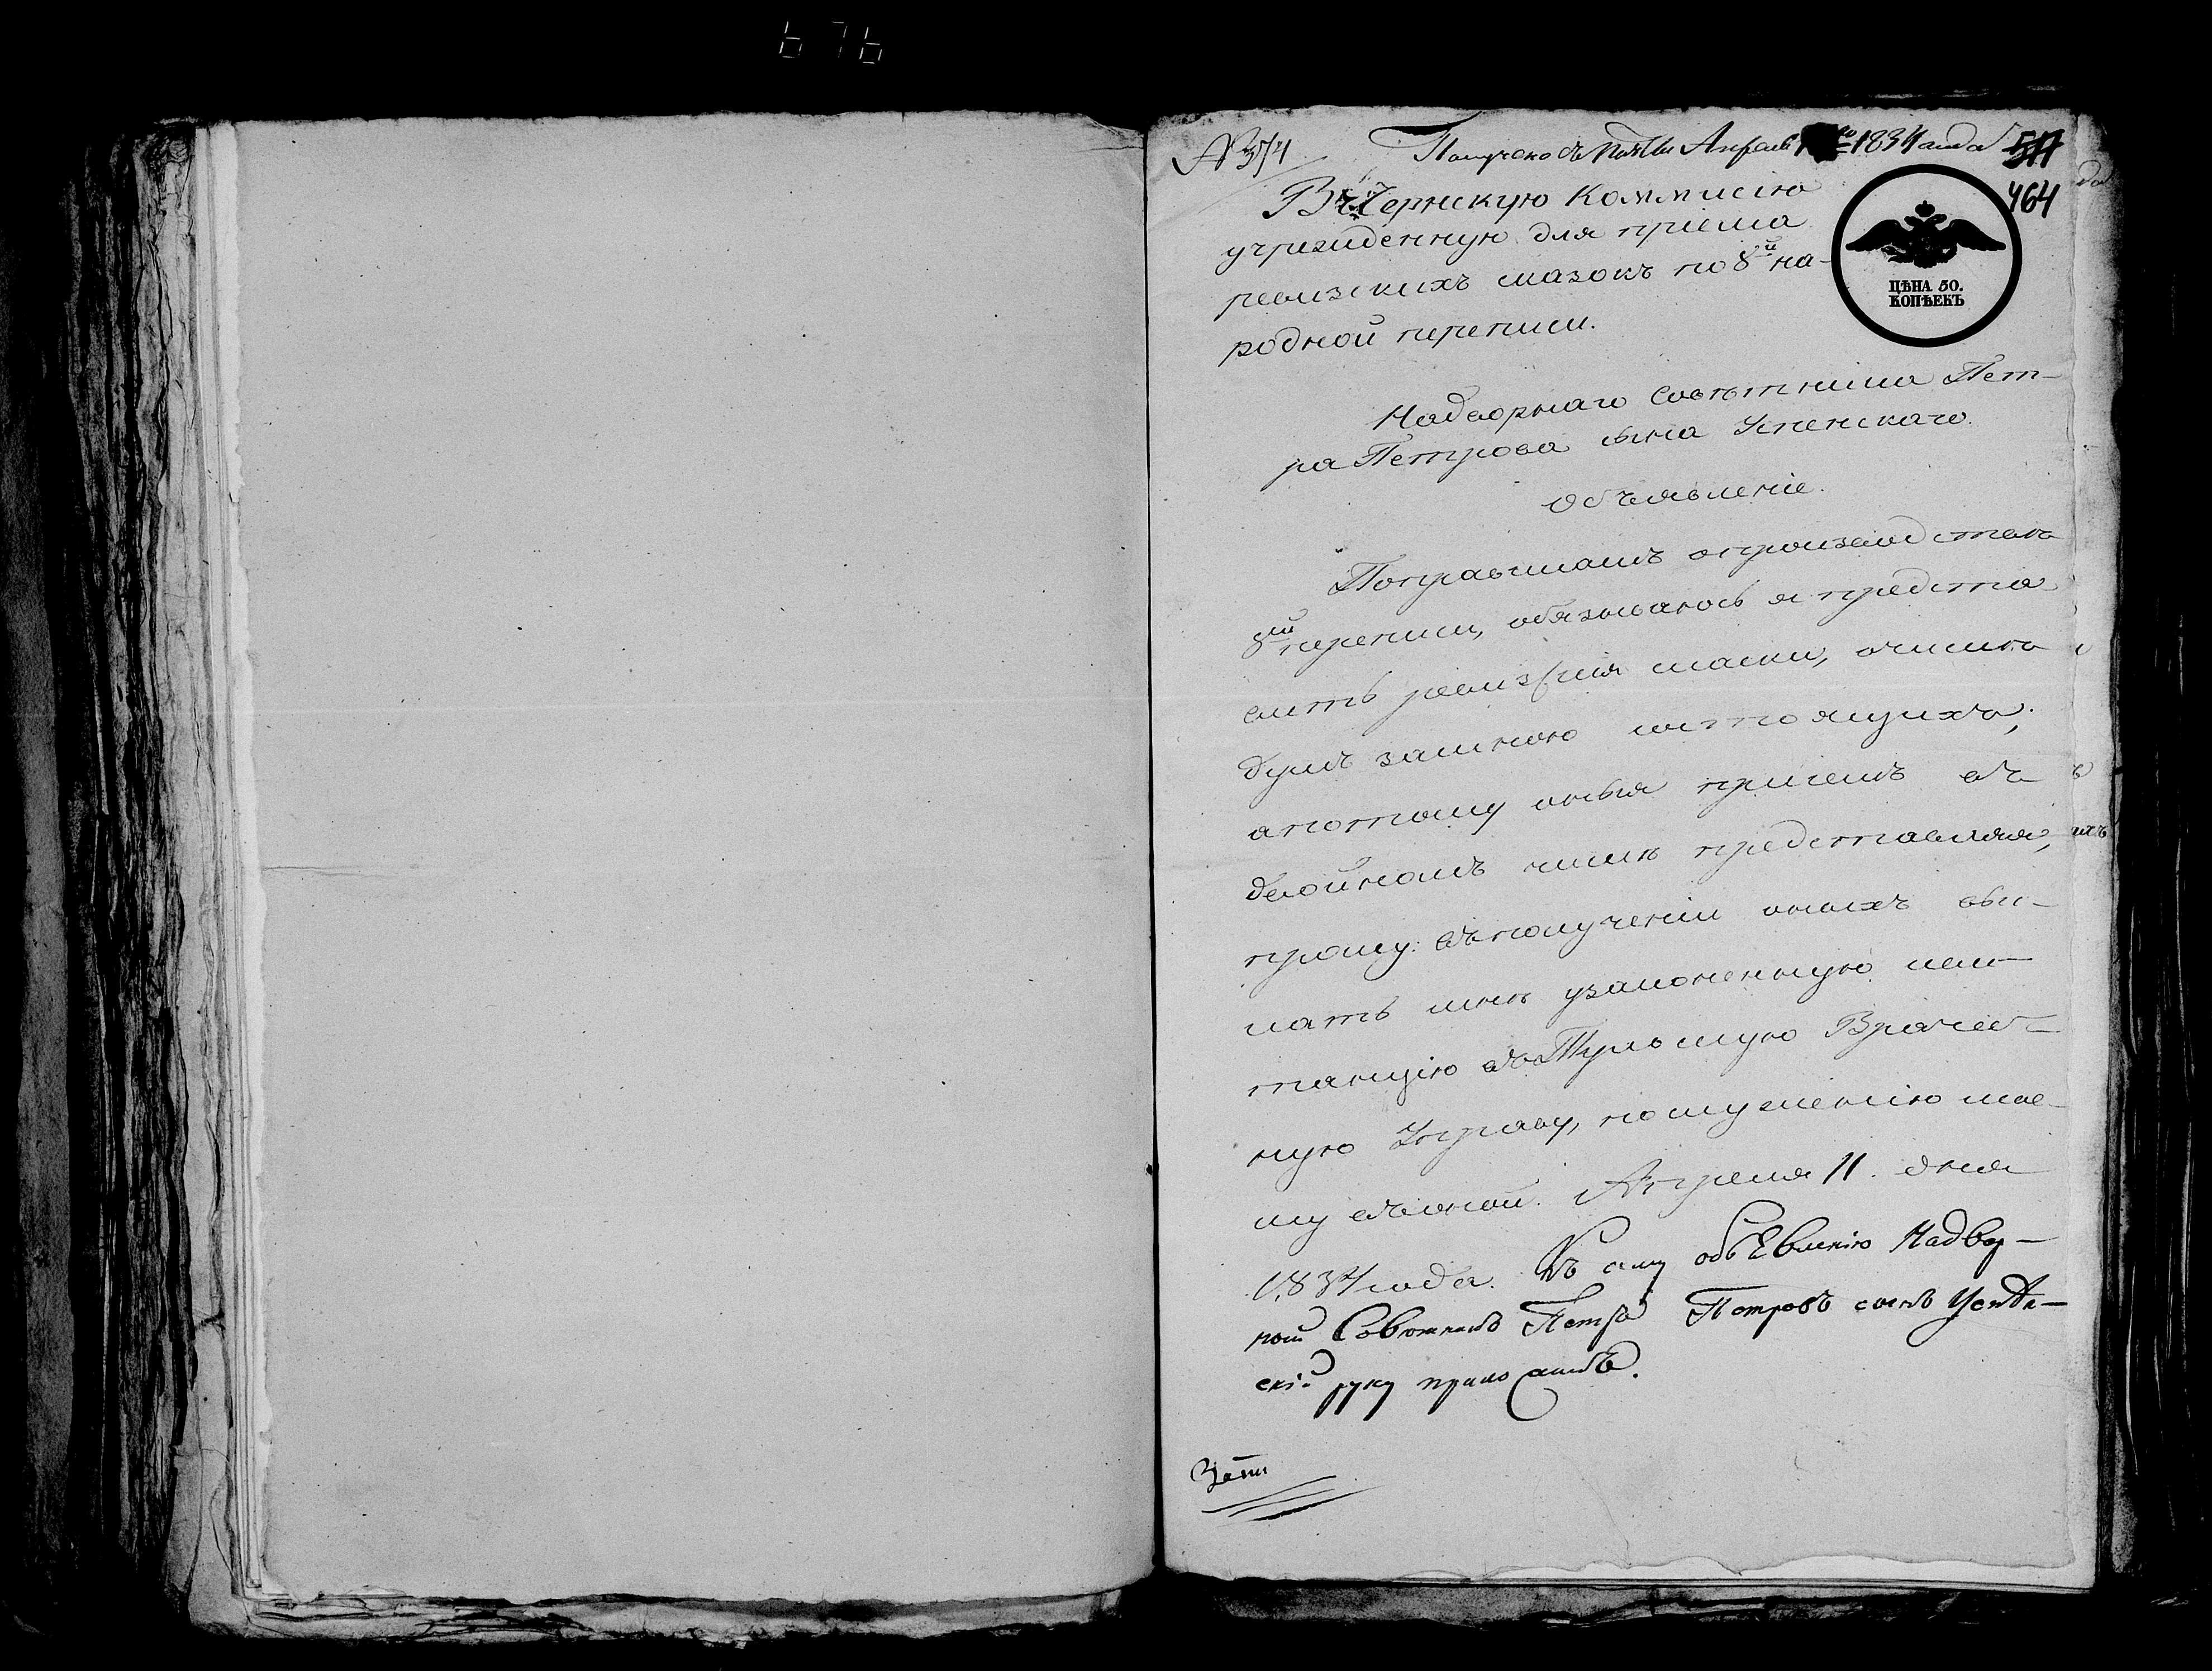 676
№374
Получено съ почты Апреля 1834 года
511
464
Въ Чернскую Коммисію
учрежденную для пріема
ревизскихъ сказокъ по 8й на-
родной переписи.
ЦѢНА 50.
КОПѢЕКЪ
Надворнаго Советника Пет-
ра Петрова сына Успенскаго
объявленіе.
Поправиламъ опроизводстве
8й переписи, обязываюсь я предста
вить ревизскія сказки, очисле
душъ замною состоящихъ;
апотому оныя присемъ въ
двойномъ числе представляя,
прошу: въполученіи оныхъ вы-
слать мне узаконенную кви-
танцію въ Тульскую Врачеб-
ную Управу, послуженію мое-
му въоной. Апреля 11. дня
1834 года. Къ сему объЕвленію Надвор-
ной Советникъ Петръ Петровъ сынъ Успен-
скій руку приложилъ.